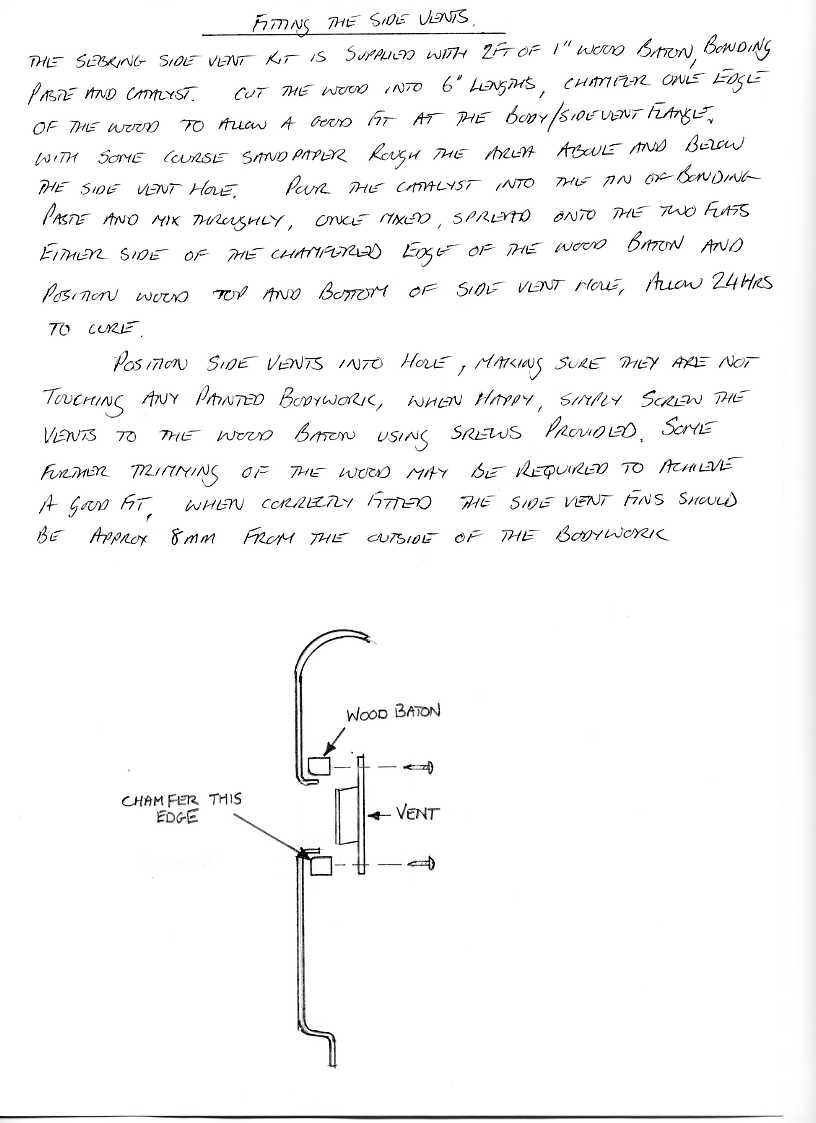 FITTING THE SIDE VENTS.
THE SEBRING SIDE VENT KIT IS SUPPLIED WITH 2FT OF 1" WOOD BATON, BONDING
PASTE AND CATALYST. CUT THE WOOD INTO 6" LENGTHS, CHAMFER ONE EDGE
OF THE WOOD TO ALLOW A GOOD FIT AT THE BODY/SIDEVENT FLANGE.
WITH SOME COURSE SANDPAPER ROUGH THE AREA ABOVE AND BELOW
THE SIDE VENT HOLE. POUR THE CATALYST INTO THE TIN OF BONDING
PASTE AND MIX THROUGHLY, ONCE MIXED, SPREAD ONTO THE TWO FLATS
EITHER SIDE OF THE CHAMFERED EDGE OF THE WOOD BATON AND
POSITION WOOD TOP AND BOTTOM OF SIDE VENT HOLE, ALLOW 24HRS
TO CURE.
POSITION SIDE VENTS INTO HOLE, MAKING SURE THEY ARE NOT
TOUCHING ANY PAINTED BODYWORK, WHEN HAPPY, SIMPLY SCREW THE
VENTS TO THE WOOD BATON USING SREWS PROVIDED. SOME
FURTHER TRIMMING OF THE WOOD MAY BE REQUIRED TO ACHIEVE
A GOOD FIT, WHEN CORRECTLY FITTED THE SIDE VENT FINS SHOULD
BE APPROX 8MM FROM THE OUTSIDE OF THE BODYWORK
WOOD BATON
CHAMFER THIS
EDGE
VENT